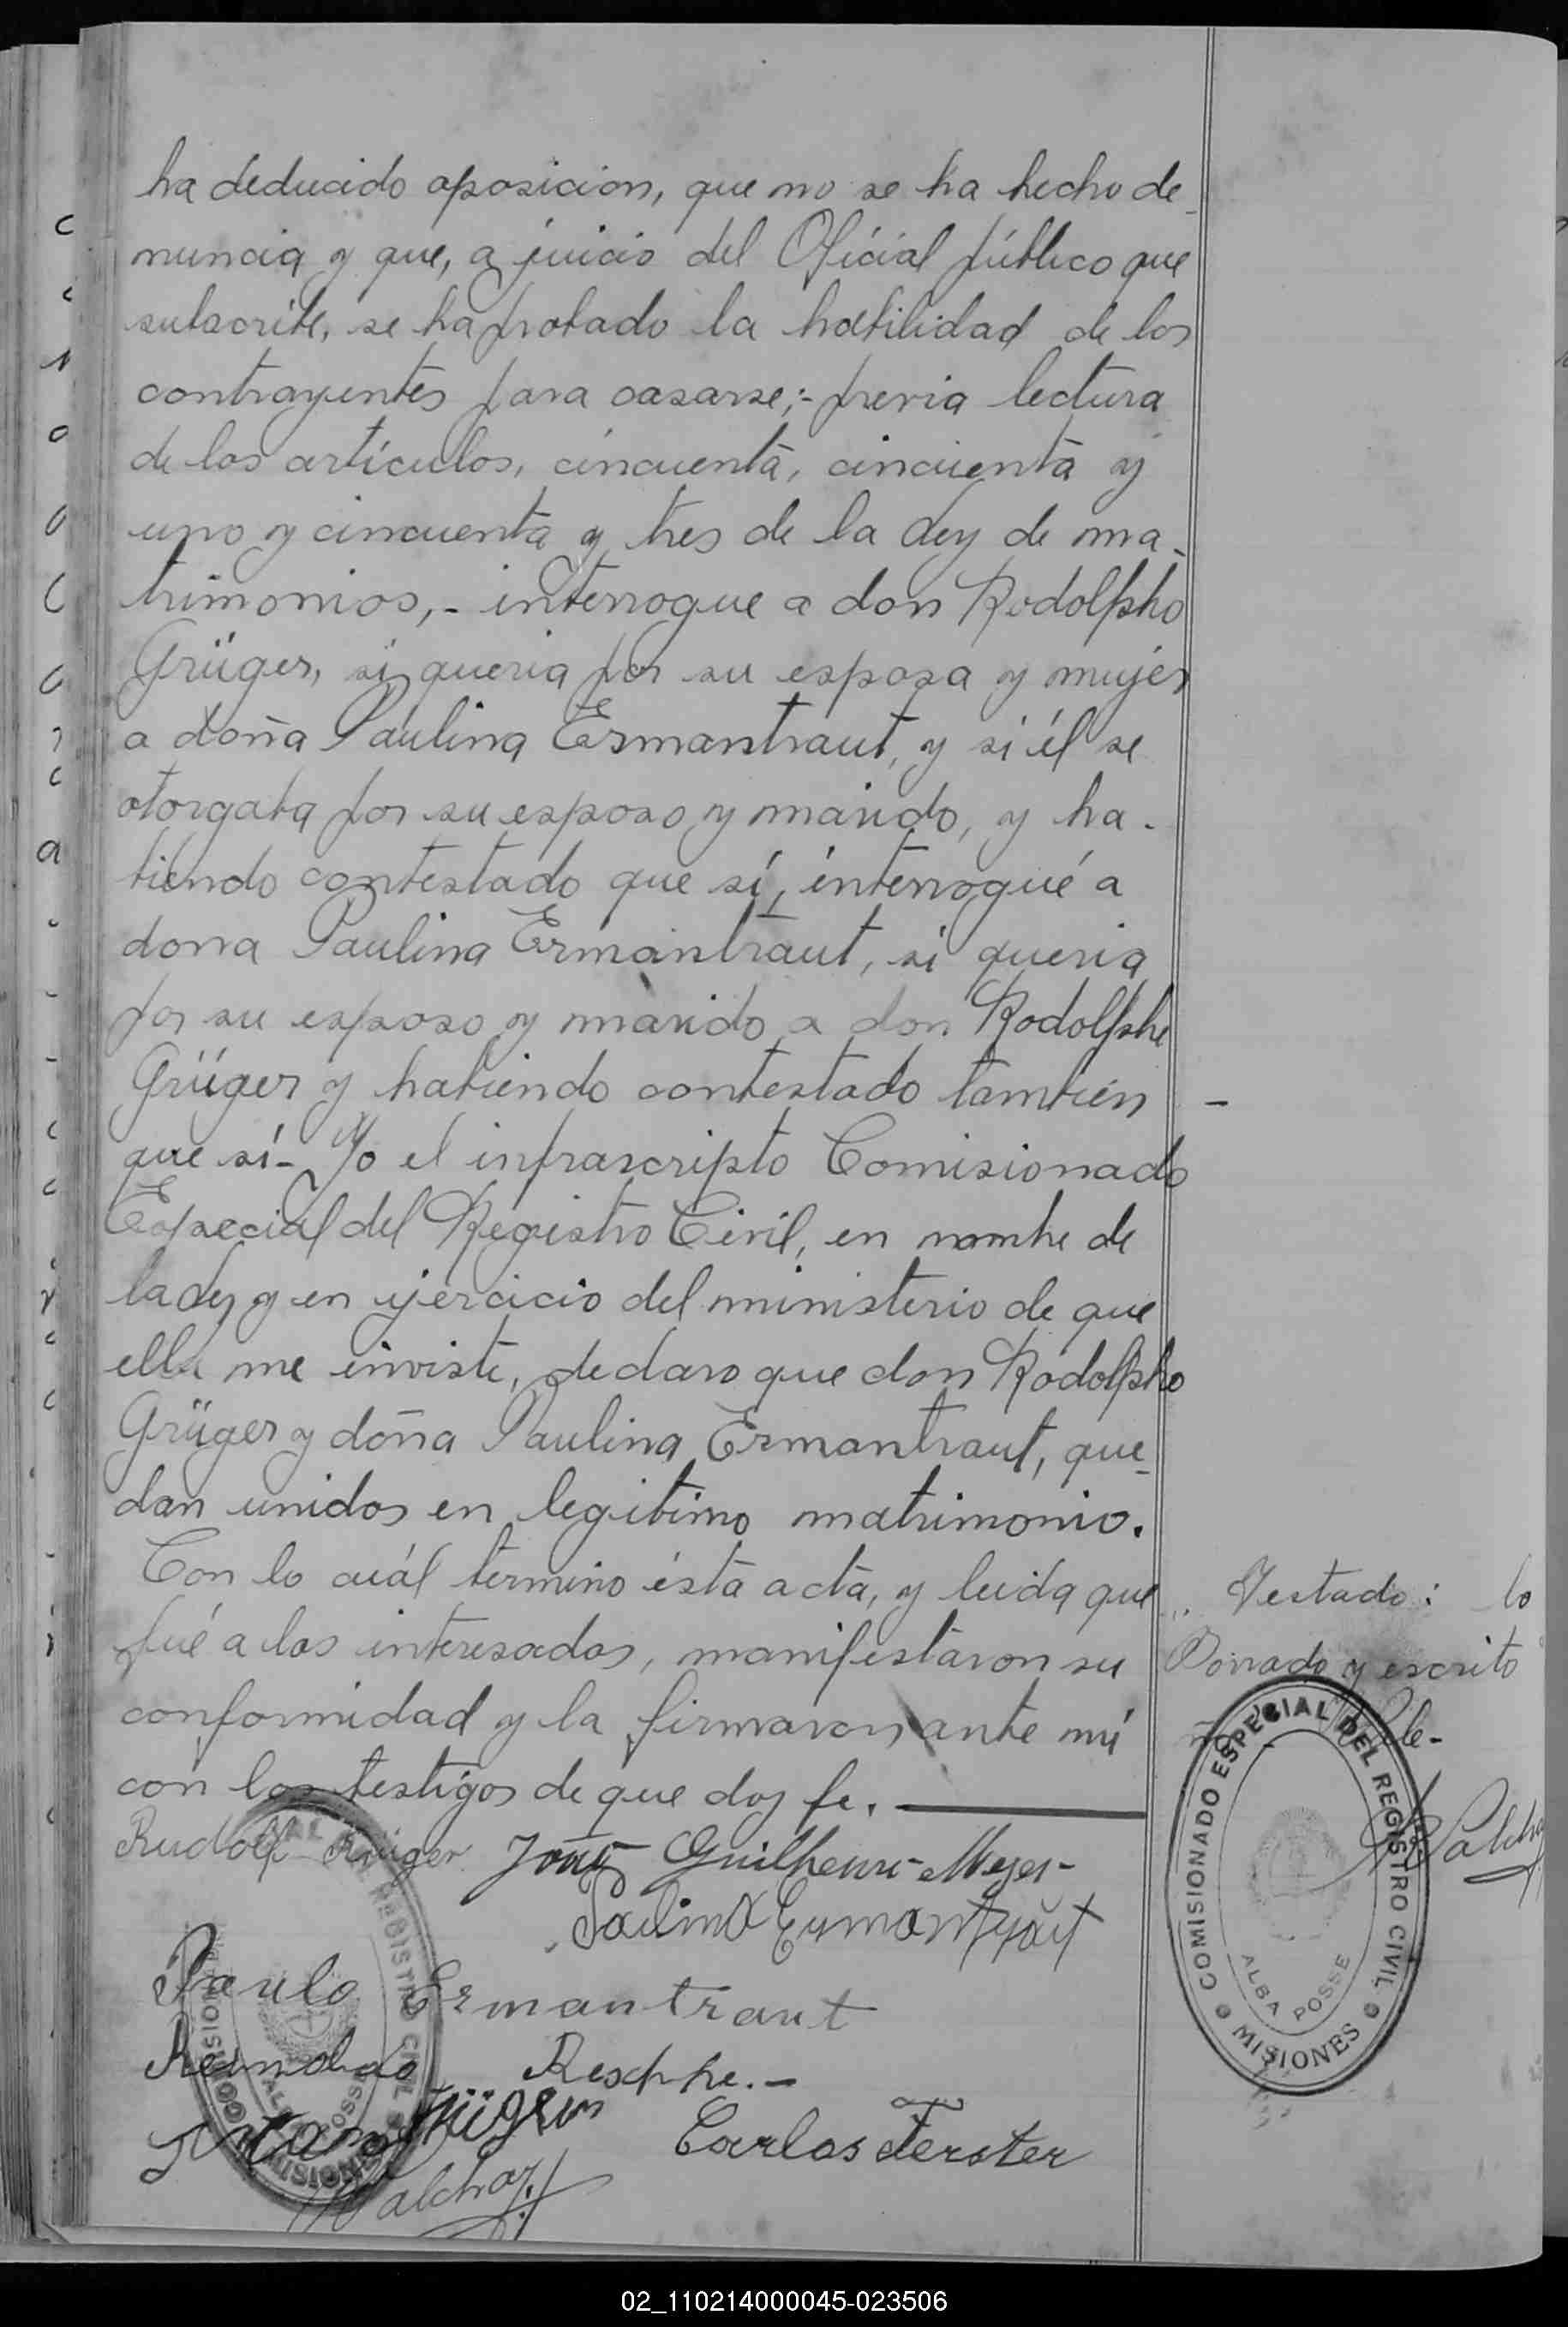 ha deducido oposicion, que no se ha hecho de-
nuncia y que, a juicio del Oficial público que
subscribe, se ha probado la habilidad de los
contrayentes para casarse;- previa lectura
de los artículos, cincuenta, cincuenta y
uno y cincuenta y tres de la Ley de ma-
trimonios,- interrogue a don Rodolpho
Grüger, si queria por su esposa y mujer
a doña Paulina Ermantraut, y si él se
otorgaba por su esposo y marido, y ha-
biendo contestado que sí, interrogué a
dona Paulina Ermantraut, si queria
por su esposo y marido a don Rodolpho
Grüger y habiendo contestado tambien -
que sí- Yo el infrascripto Comisionado
Especial del Registro Civil, en nombre de
la Ley y en ejercicio del ministerio de que
ella me inviste, declaro que don Rodolpho
Grüger y doña Paulina Ermantraut, que-
dan unidos en legitimo matrimonio.
Con lo cuál termino ésta acta, y leida que
fué a los interesados, manifestaron su
conformidad y la firmaron ante mí
con los testigos de que doy fe.
Testado: lo
Borrado y escrito
Vale-
Rudolf Krüger João Guilherme Meyer-
Paulina Ermantraut
Paulo Ermantraut
Reinoldo Reschke.-
Krügem
Carlos Ferster
COMISIONADO ESPECIAL DEL REGISTRO CIVIL
ALBA POSSE
MISIONES
02_110214000045-023506